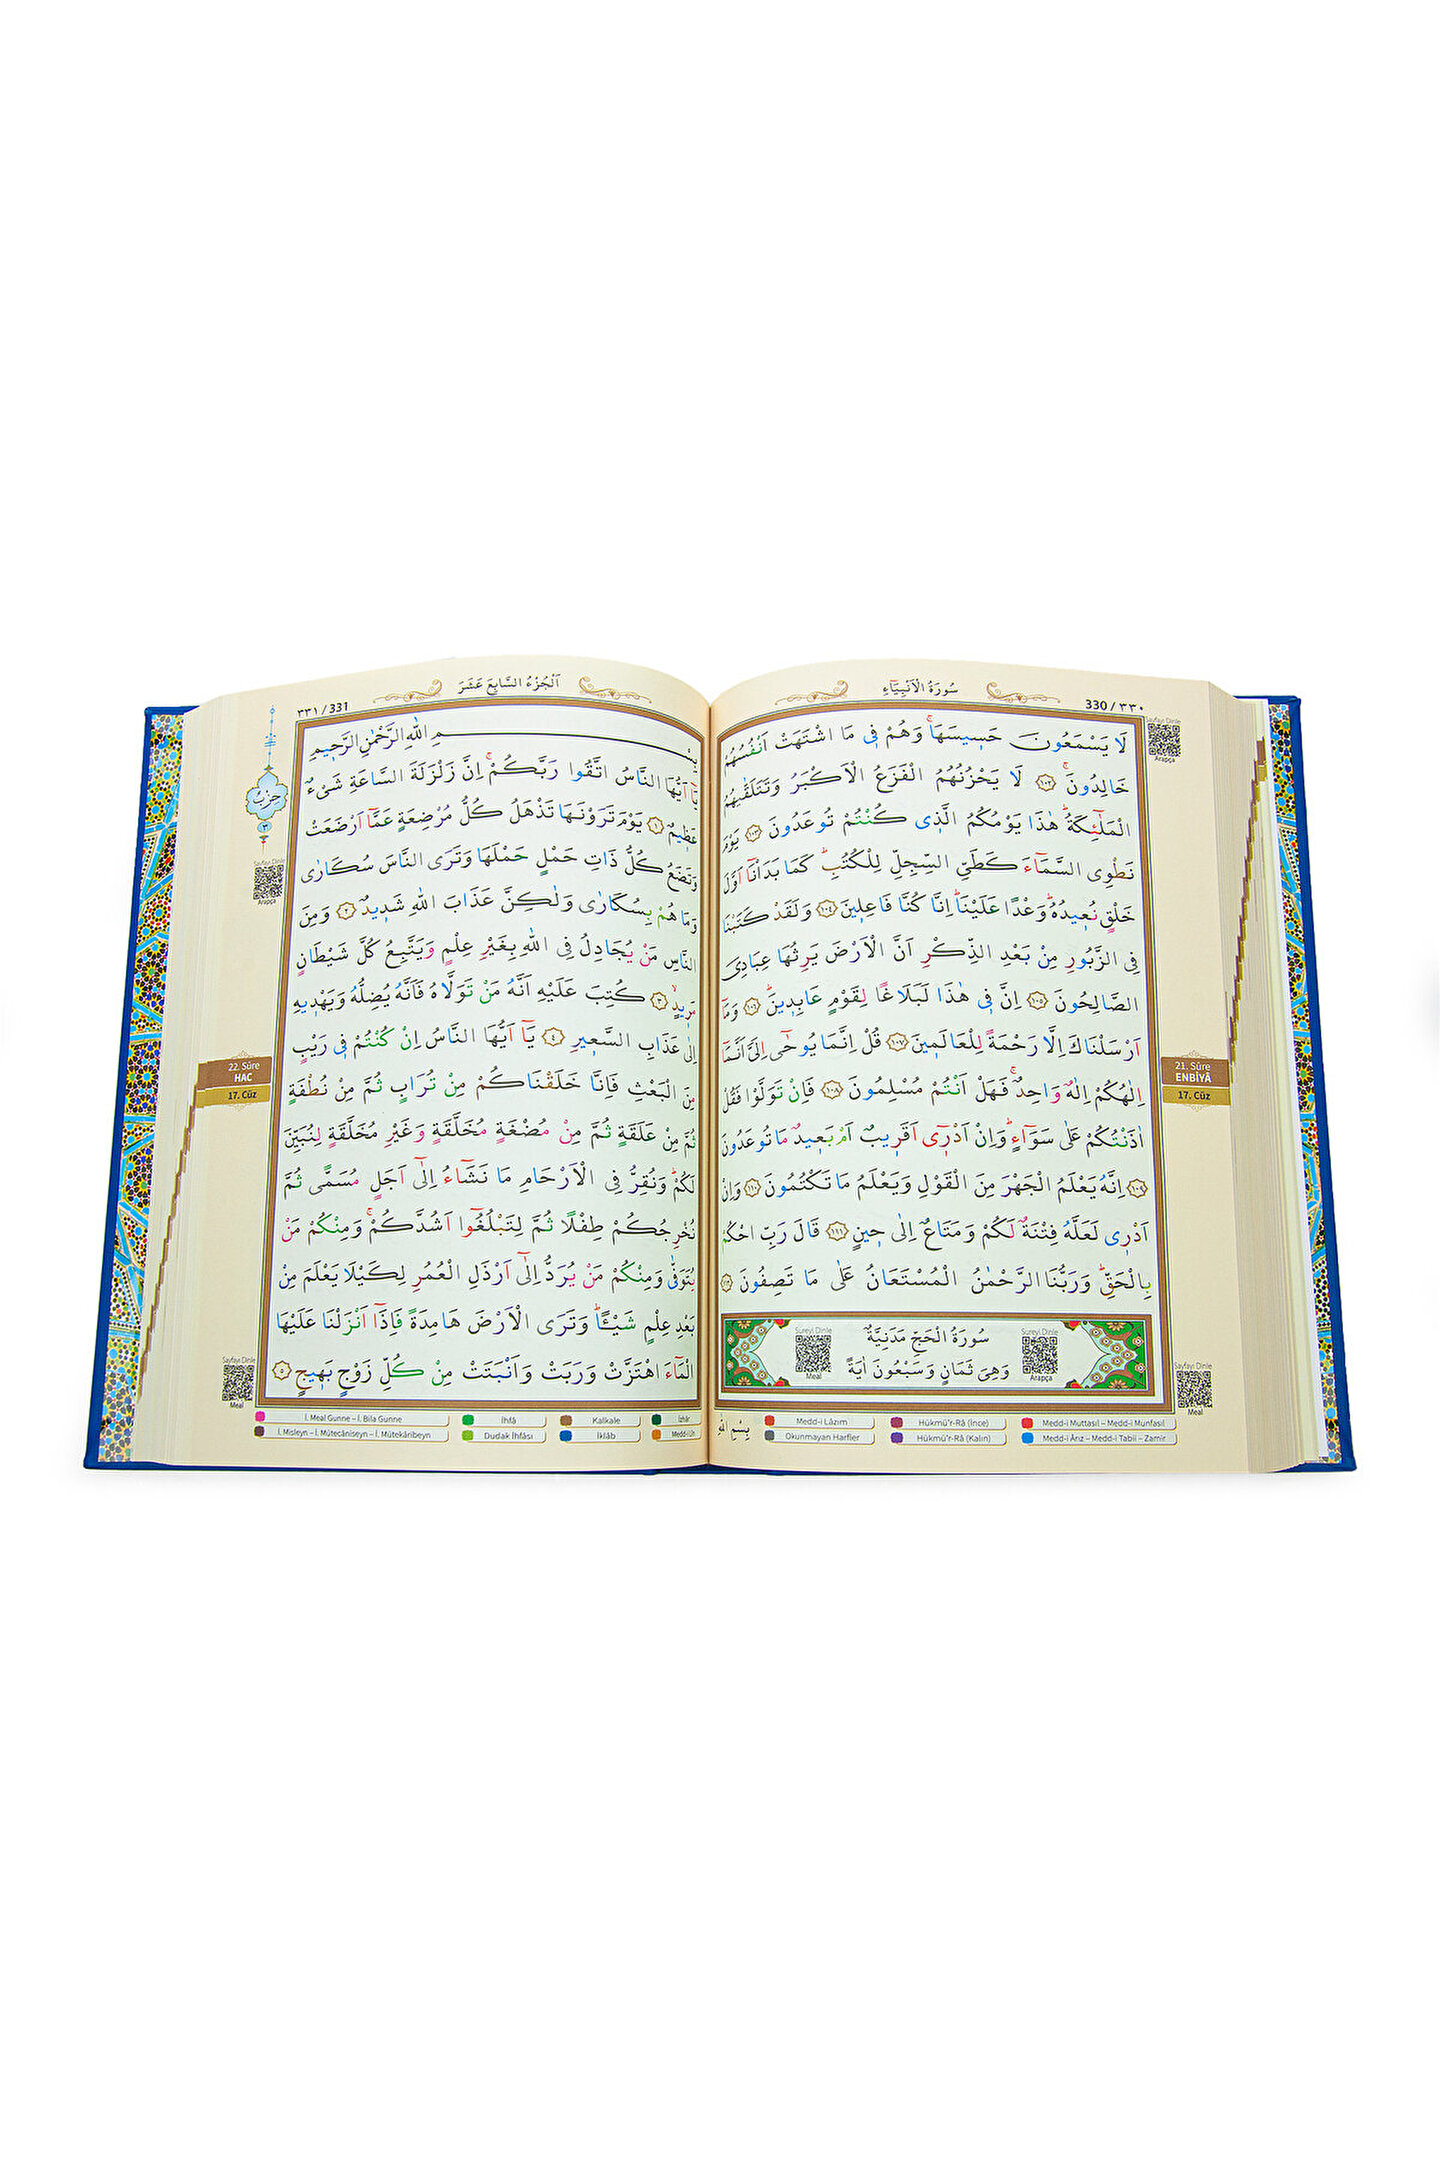 سُورَةُ الْاَنْبِيَٓاءِ
330 / ٣٣٠
Sayfayı Dinle
Arapça
لَا يَسْمَعُونَ حَسٖيسَهَاۚ وَهُمْ فٖى مَا اشْتَهَتْ اَنْفُسُهُمْ
خَالِدُونَۚ ﴿١٠٢﴾ لَا يَحْزُنُهُمُ الْفَزَعُ الْاَكْبَرُ وَتَتَلَقّٰيهُمُ
الْمَلٰٓئِكَةُؕ هٰذَا يَوْمُكُمُ الَّذٖى كُنْتُمْ تُوعَدُونَ ﴿١٠٣﴾ يَوْمَ
نَطْوِى السَّمَٓاءَ كَطَىِّ السِّجِلِّ لِلْكُتُبِؕ كَمَا بَدَاْنَٓا اَوَّلَ
خَلْقٍ نُعٖيدُهُؕ وَعْدًا عَلَيْنَاؕ اِنَّا كُنَّا فَاعِلٖينَ ﴿١٠٤﴾ وَلَقَدْ كَتَبْنَا
فِى الزَّبُورِ مِنْ بَعْدِ الذِّكْرِ اَنَّ الْاَرْضَ يَرِثُهَا عِبَادِىَ
الصَّالِحُونَ ﴿١٠٥﴾ اِنَّ فٖى هٰذَا لَبَلَاغًا لِقَوْمٍ عَابِدٖينَؕ ﴿١٠٦﴾ وَمَٓا
اَرْسَلْنَاكَ اِلَّا رَحْمَةً لِلْعَالَمٖينَ ﴿١٠٧﴾ قُلْ اِنَّمَا يُوحٰٓى اِلَىَّ اَنَّمَٓا
اِلٰهُكُمْ اِلٰهٌ وَاحِدٌۚ فَهَلْ اَنْتُمْ مُسْلِمُونَ ﴿١٠٨﴾ فَاِنْ تَوَلَّوْا فَقُلْ
اٰذَنْتُكُمْ عَلٰى سَوَٓاءٍؕ وَاِنْ اَدْرٖٓى اَقَرٖيبٌ اَمْ بَعٖيدٌ مَا تُوعَدُونَ
﴿١٠٩﴾ اِنَّهُ يَعْلَمُ الْجَهْرَ مِنَ الْقَوْلِ وَيَعْلَمُ مَا تَكْتُمُونَ ﴿١١٠﴾ وَاِنْ
اَدْرٖى لَعَلَّهُ فِتْنَةٌ لَكُمْ وَمَتَاعٌ اِلٰى حٖينٍ ﴿١١١﴾ قَالَ رَبِّ احْكُمْ
بِالْحَقِّؕ وَرَبُّنَا الرَّحْمٰنُ الْمُسْتَعَانُ عَلٰى مَا تَصِفُونَ ﴿١١٢﴾
سُورَةُ الْحَجِّ مَدَنِيَّةٌ
وَهِىَ ثَمَانٍ وَسَبْعُونَ اٰيَةً
Sureyi Dinle
Arapça
Sureyi Dinle
Meal
21. Sûre
ENBİYÂ
17. Cüz
Sayfayı Dinle
Meal
بِسْمِ اللّٰهِ
Medd-i Lâzım
Hükmü'r-Râ (İnce)
Medd-i Muttasıl – Medd-i Munfasıl
Okunmayan Harfler
Hükmü'r-Râ (Kalın)
Medd-i Ârız – Medd-i Tabii – Zamir
اَلْجُزْءُ السَّابِعَ عَشَرَ
٣٣١ / 331
حِزْبٌ
٣
Sayfayı Dinle
Arapça
بِسْمِ اللّٰهِ الرَّحْمٰنِ الرَّحٖيمِ
يَٓا اَيُّهَا النَّاسُ اتَّقُوا رَبَّكُمْۚ اِنَّ زَلْزَلَةَ السَّاعَةِ شَىْءٌ
عَظٖيمٌ ﴿١﴾ يَوْمَ تَرَوْنَهَا تَذْهَلُ كُلُّ مُرْضِعَةٍ عَمَّٓا اَرْضَعَتْ
وَتَضَعُ كُلُّ ذَاتِ حَمْلٍ حَمْلَهَا وَتَرَى النَّاسَ سُكَارٰى
وَمَا هُمْ بِسُكَارٰى وَلٰكِنَّ عَذَابَ اللّٰهِ شَدٖيدٌ ﴿٢﴾ وَمِنَ
النَّاسِ مَنْ يُجَادِلُ فِى اللّٰهِ بِغَيْرِ عِلْمٍ وَيَتَّبِعُ كُلَّ شَيْطَانٍ
مَرٖيدٍۙ ﴿٣﴾ كُتِبَ عَلَيْهِ اَنَّهُ مَنْ تَوَلَّاهُ فَاَنَّهُ يُضِلُّهُ وَيَهْدٖيهِ
اِلٰى عَذَابِ السَّعٖيرِ ﴿٤﴾ يَٓا اَيُّهَا النَّاسُ اِنْ كُنْتُمْ فٖى رَيْبٍ
مِنَ الْبَعْثِ فَاِنَّا خَلَقْنَاكُمْ مِنْ تُرَابٍ ثُمَّ مِنْ نُطْفَةٍ
ثُمَّ مِنْ عَلَقَةٍ ثُمَّ مِنْ مُضْغَةٍ مُخَلَّقَةٍ وَغَيْرِ مُخَلَّقَةٍ لِنُبَيِّنَ
لَكُمْؕ وَنُقِرُّ فِى الْاَرْحَامِ مَا نَشَٓاءُ اِلٰٓى اَجَلٍ مُسَمًّى ثُمَّ
نُخْرِجُكُمْ طِفْلًا ثُمَّ لِتَبْلُغُٓوا اَشُدَّكُمْۚ وَمِنْكُمْ مَنْ
يُتَوَفّٰى وَمِنْكُمْ مَنْ يُرَدُّ اِلٰٓى اَرْذَلِ الْعُمُرِ لِكَيْلَا يَعْلَمَ مِنْ
بَعْدِ عِلْمٍ شَيْـًٔاؕ وَتَرَى الْاَرْضَ هَامِدَةً فَاِذَٓا اَنْزَلْنَا عَلَيْهَا
الْمَٓاءَ اهْتَزَّتْ وَرَبَتْ وَاَنْبَتَتْ مِنْ كُلِّ زَوْجٍ بَهٖيجٍ ﴿٥﴾
22. Sûre
HAC
17. Cüz
Sayfayı Dinle
Meal
İ. Meal Gunne – İ. Bila Gunne
İhfâ
Kalkale
İzhâr
İ. Misleyn – İ. Mütecâniseyn – İ. Mütekâribeyn
Dudak İhfâsı
İklâb
Medd-i Lîn